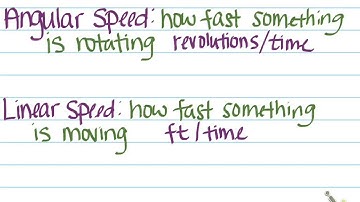 Angular Speed: how fast something
is rotating revolutions/time
Linear Speed: how fast something
is moving ft/time